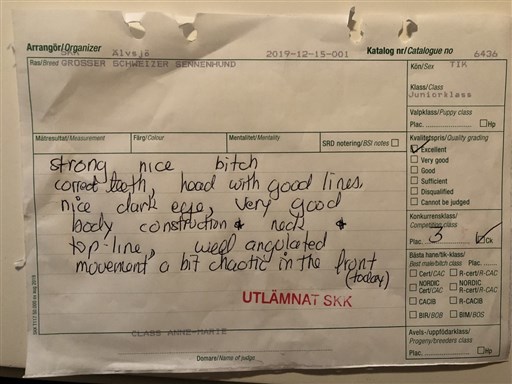 Arrangör/Organizer
SKK Älvsjö
2019-12-15-001
Katalog nr/Catalogue no
6436
Ras/Breed GROSSER SCHWEIZER SENNENHUND
Kön/Sex TIK
Klass/Class
Juniorklass
Valpklass/Puppy class
Plac. Hp
Mätresultat/Measurement
Färg/Colour
Mentalitet/Mentality
SRD notering/BSI notes
Kvalitetspris/Quality grading
Excellent
Very good
Good
Sufficient
Disqualified
Cannot be judged
strong nice bitch
correct teeth, head with good lines,
nice dark eye, very good
body construction & neck &
top-line, well angulated
movement a bit chaotic in the front
(today)
Konkurrensklass/
Competition class
Plac. 3 Ck
Bästa hane/tik-klass/
Best male/bitch class Plac.
Cert/CAC R-cert/R-CAC
NORDIC Cert/CAC NORDIC R-cert/R-CAC
CACIB R-CACIB
BIR/BOB BIM/BOS
Avels-/uppfödarklass/
Progeny/breeders class
Plac. Hp
UTLÄMNAT SKK
CLASS ANNE-MARIE
Domare/Name of judge